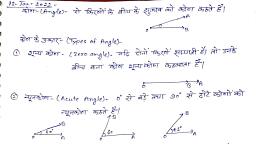 12-Jan-2022
कोण-(Angle)- दो किरणों के बीच के झुकाव को कोण कहते हैं।
कोण के प्रकार- (Types of Angle)-
① शून्य कोण- (Zero angle)- यदि दोनों किरणें हो तो उनके
बीच बना कोण शून्य कोण कहलाता है।
② न्यूनकोण- (Acute Angle)- 0° से बड़े तथा 90° से छोटे कोणों को
न्यूनकोण कहते हैं।